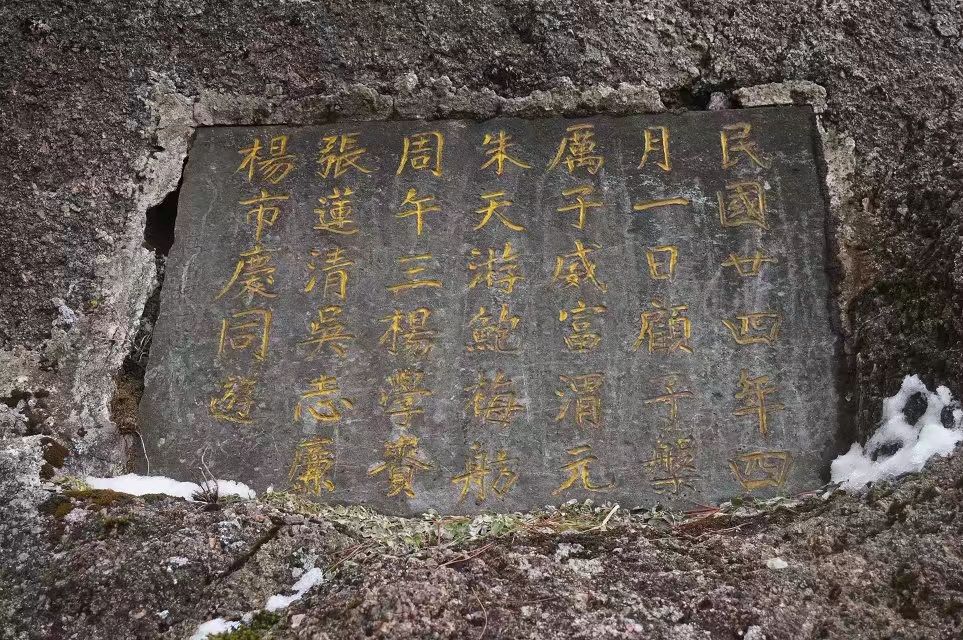 民國廿四年四
月一日顧子槃
厲子威富渭元
朱天游鮑梅舫
周午三楊學賚
張蓮清吳志廉
楊市慶同遊